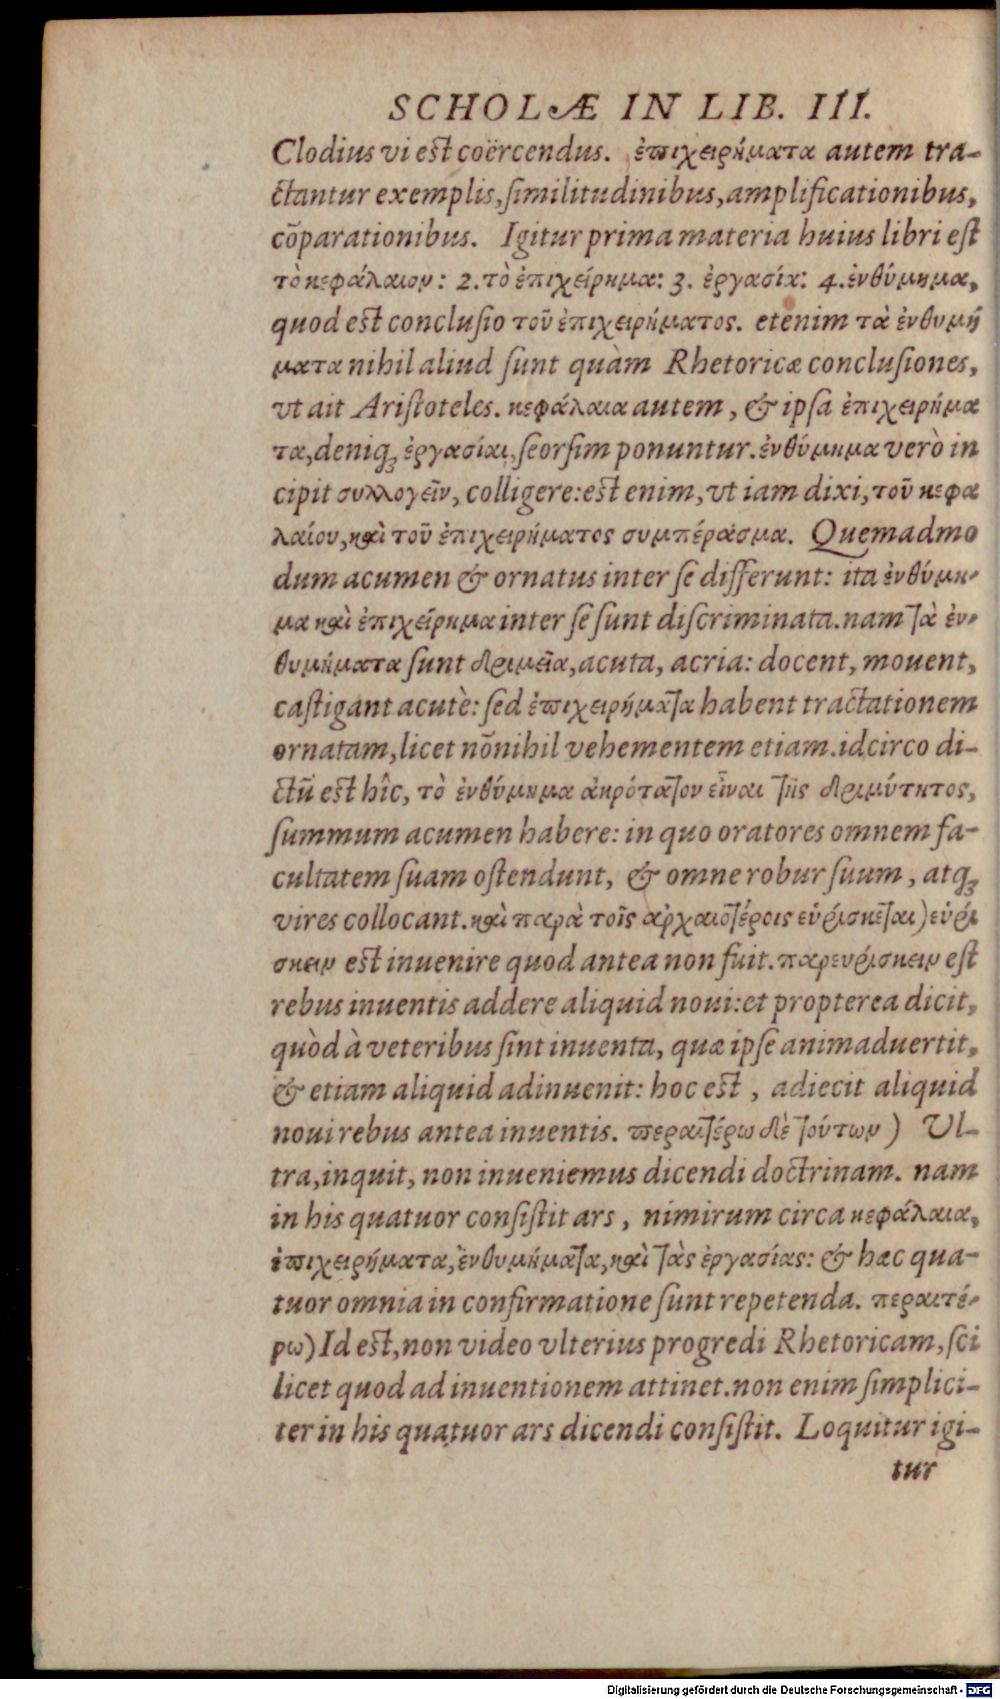 SCHOLÆ IN LIB. III.
Clodius vi est coërcendus. ἐπιχειρήματα autem tra-
ctantur exemplis, similitudinibus, amplificationibus,
cōparationibus. Igitur prima materia huius libri est
τὸ κεφάλαιον: 2. τὸ ἐπιχείρημα: 3. ἐργασία: 4. ἐνθύμημα,
quod est conclusio τοῦ ἐπιχειρήματος. etenim τὰ ἐνθυμή
ματα nihil aliud sunt quàm Rhetoricæ conclusiones,
vt ait Aristoteles. κεφάλαια autem, & ipsa ἐπιχειρήμα
τα, deniq; ἐργασίαι, seorsim ponuntur. ἐνθύμημα verò in
cipit συλλογεῖν, colligere: est enim, vt iam dixi, τοῦ κεφα
λαίου, καὶ τοῦ ἐπιχειρήματος συμπέρασμα. Quemadmo
dum acumen & ornatus inter se differunt: ita ἐνθύμη-
μα καὶ ἐπιχείρημα inter se sunt discriminata. nam τὰ ἐν-
θυμήματα sunt δριμεῖα, acuta, acria: docent, mouent,
castigant acutè: sed ἐπιχειρήματα habent tractationem
ornatam, licet nōnihil vehementem etiam. idcirco di-
ctū est hîc, τὸ ἐνθύμημα ἀκρότατον εἶναι τῆς δριμύτητος,
summum acumen habere: in quo oratores omnem fa-
cultatem suam ostendunt, & omne robur suum, atq;
vires collocant. καὶ παρὰ τοῖς ἀρχαιοτέροις εὑρίσκεται) εὑρί
σκειν est inuenire quod antea non fuit. παρευρίσκειν est
rebus inuentis addere aliquid noui: et propterea dicit,
quòd à veteribus sint inuenta, quæ ipse animaduertit,
& etiam aliquid adinuenit: hoc est, adiecit aliquid
noui rebus antea inuentis. περαιτέρω δὲ τούτων) Vl-
tra, inquit, non inueniemus dicendi doctrinam. nam
in his quatuor consistit ars, nimirum circa κεφάλαια,
ἐπιχειρήματα, ἐνθυμήματα, καὶ τὰς ἐργασίας: & hæc qua-
tuor omnia in confirmatione sunt repetenda. περαιτέ-
ρω) Id est, non video vlterius progredi Rhetoricam, sci
licet quod ad inuentionem attinet. non enim simplici-
ter in his quatuor ars dicendi consistit. Loquitur igi-
tur
Digitalisierung gefördert durch die Deutsche Forschungsgemeinschaft - DFG